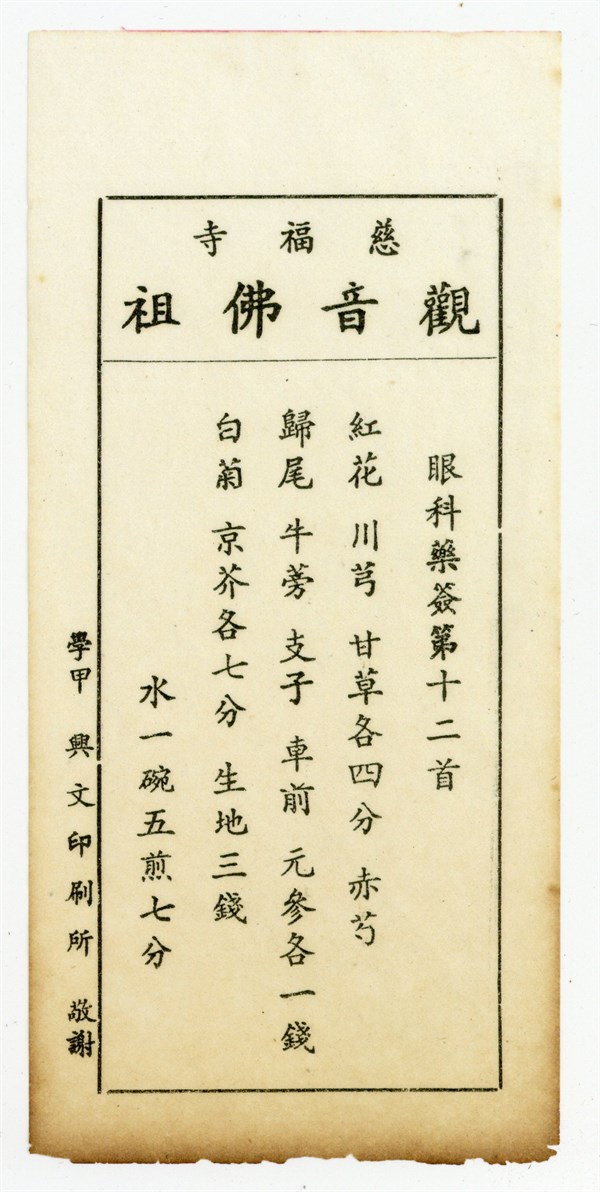 慈福寺
觀音佛祖
眼科藥簽第十二首
紅花 川芎 甘草各四分 赤芍
歸尾 牛蒡 支子 車前 元參各一錢
白菊 京芥各七分 生地三錢
水一碗五煎七分
學甲 興文印刷所 敬謝